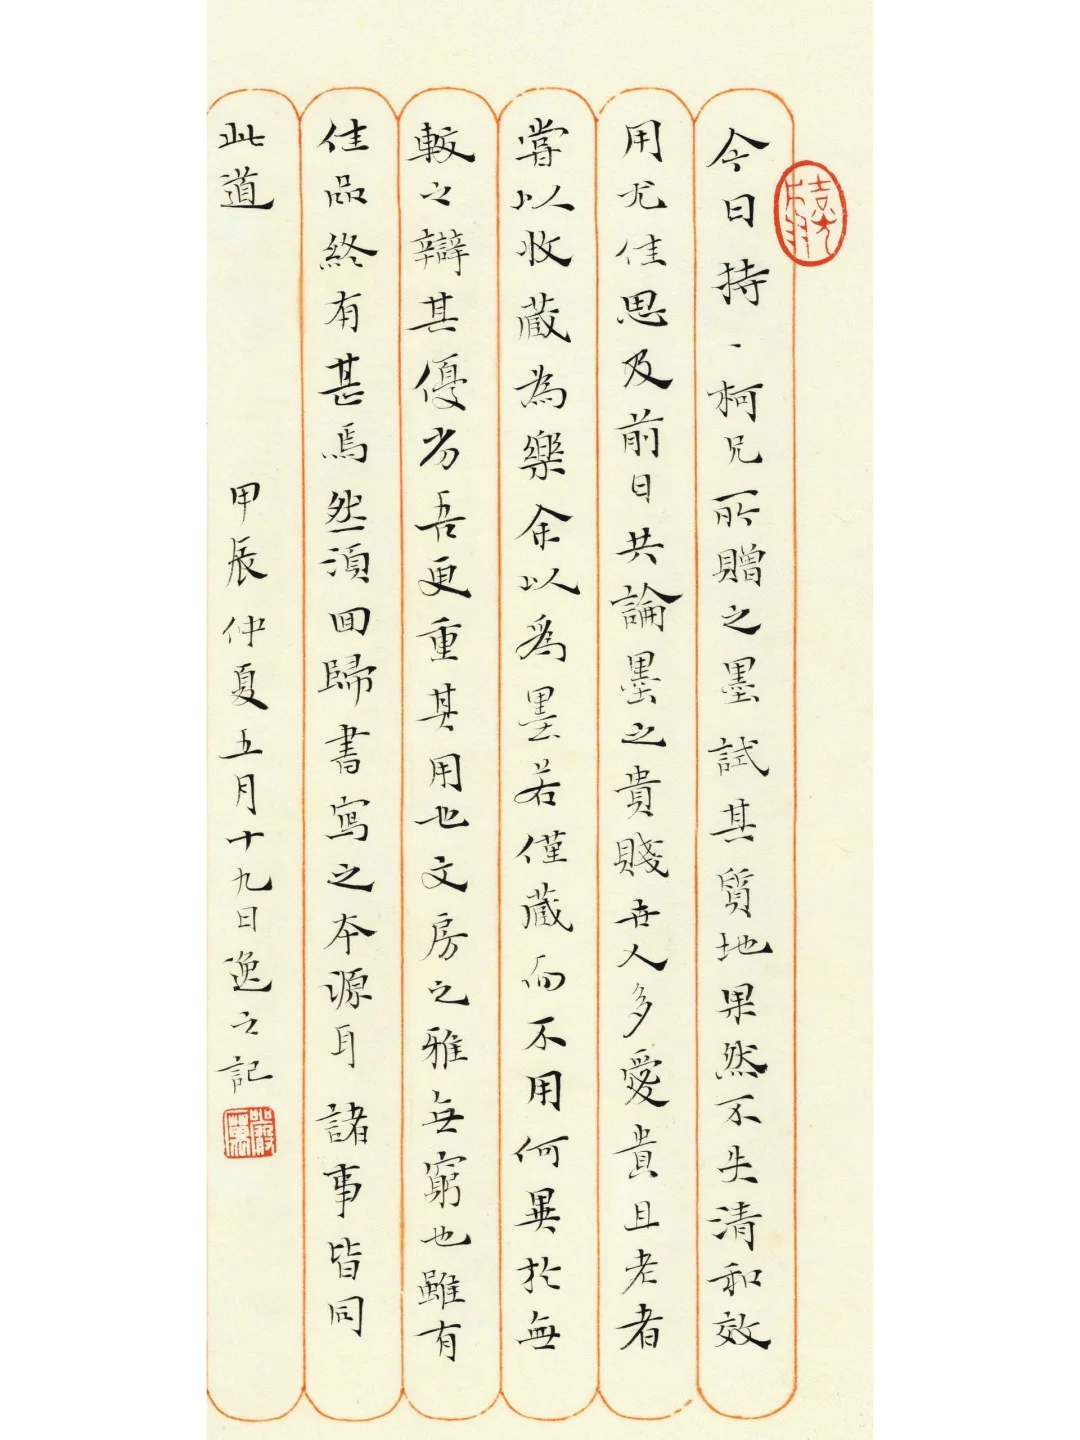 今日持一柯兄所贈之墨試其質地果然不失清和效
用尤佳思及前日共論墨之貴賤世人多愛貴且老者
嘗以收蔵為樂余以為墨若僅蔵而不用何異於無
較之辯其優劣吾更重其用也文房之雅無窮也雖有
佳品終有甚焉然須回歸書寫之本源耳諸事皆同
此道
甲辰仲夏五月十九日逸之記